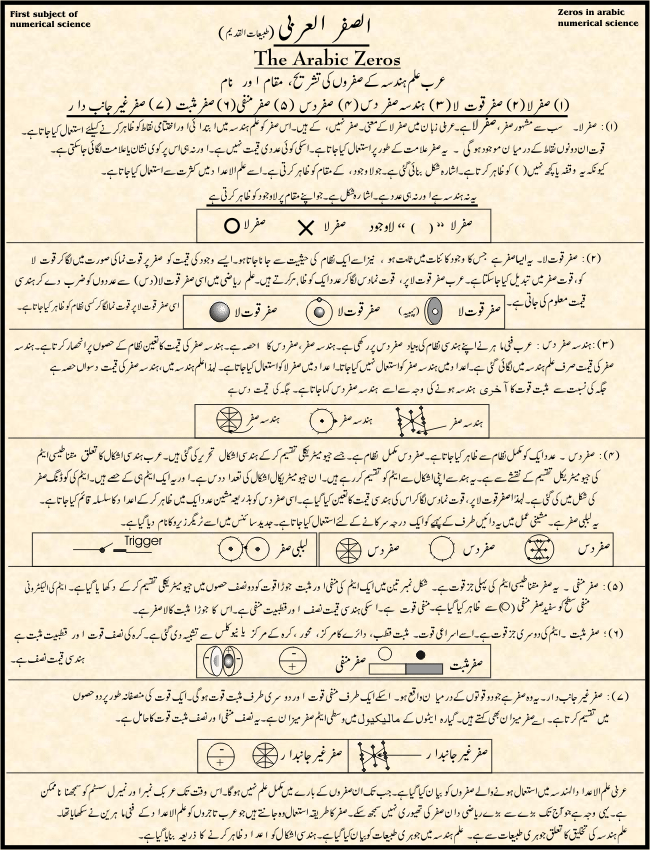 First subject of
numerical science
الصفر العربی (طبیعات القدیم)
Zeros in arabic
numerical science
The Arabic Zeros
عرب علم ہندسہ کے صفروں کی تشریح، مقام اور نام
(۱) صفر لا (۲) صفر قوت لا (۳) ہندسہ صفر دس (۴) صفر دس (۵) صفر منفی (۶) صفر مثبت (۷) صفر غیر جانب دار
(۱) : صفر لا۔ سب سے مشہور صفر، صفر لا ہے۔ عربی زبان میں صفر لا کے معنی، صفر نہیں، کے ہیں۔ اس صفر کو علم ہندسہ میں ابتدائی اور اختتامی نقاط کو ظاہر کرنے کیلئے استعمال کیا جاتا ہے۔
قوت ان دونوں نقاط کے درمیان موجود ہوگی ۔ یہ صفر علامت کے طور پر استعمال کیا جاتا ہے۔ اسکی کوئی عددی قیمت نہیں ہے۔ اور نہ ہی اس پر کوئی نشان یا علامت لگائی جا سکتی ہے۔
کیونکہ یہ وقفہ یا کچھ نہیں ( ) کو ظاہر کرتا ہے۔ اشارہ شکل بنائی گئی ہے۔ جو لا وجود، کے مقام کو ظاہر کرتی ہے۔ اسے علم الاعداد میں کثرت سے استعمال کیا جاتا ہے۔
یہ نہ ہندسہ ہے اور نہ ہی عدد ہے۔ اشارہ شکل ہے۔ جو اپنے مقام پر لا وجود کو ظاہر کرتی ہے
صفر لا “ ( ) “ لاوجود صفر لا صفر لا
(۲) : صفر قوت لا۔ یہ ایسا صفر ہے جس کا وجود کائنات میں ثابت ہو ، نیز اسے ایک نظام کی حیثیت سے جانا جاتا ہو۔ ایسے وجود کی قیمت کو صفر پر قوت نما کی صورت میں لگا کر قوت لا
کو، قوت صفر میں تبدیل کیا جا سکتا ہے۔ عرب صفر قوت لا پر، قوت نما دس لگا کر عدد ایک کو ظاہر کرتے ہیں۔ علم ریاضی میں اسی صفر قوت لا (دس) سے عددوں کو ضرب دے کر ہندسی
قیمت معلوم کی جاتی ہے۔
صفر قوت لا (پہیہ) صفر قوت لا صفر قوت لا
اسی صفر قوت لا پر قوت نما لگا کر کسی نظام کو ظاہر کیا جاتا ہے۔
(۳) : ہندسہ صفر دس : عرب فنی ماہر نے اپنے ہندسی نظام کی بنیاد صفر دس پر رکھی ہے۔ ہندسہ صفر، صفر دس کا حصہ ہے۔ ہندسہ صفر کی قیمت کا تعین نظام کے حصوں پر انحصار کرتا ہے۔ ہندسہ
صفر کی قیمت صرف علم ہندسہ میں لگائی گئی ہے۔ اعداد میں ہندسہ صفر کا استعمال نہیں کیا جاتا۔ اعداد میں صفر لا کو استعمال کیا جاتا ہے۔ لہذا علم ہندسہ میں، ہندسہ صفر کی قیمت دسواں حصہ ہے
جگہ کی نسبت سے مثبت قوت کا آخری ہندسہ ہونے کی وجہ سے اسے ہندسہ صفر دس کہا جاتا ہے۔ جگہ کی قیمت دس ہے
ہندسہ صفر ہندسہ صفر ہندسہ صفر
(۴) : صفر دس ۔ عدد ایک کو مکمل نظام سے ظاہر کیا جاتا ہے۔ صفر دس مکمل نظام ہے۔ جسے جیومیٹریکلی تقسیم کر کے ہندسی اشکال تحریر کی گئی ہیں۔ عرب ہندسی اشکال کا تعلق مقناطیسی ایٹم
کی جیومیٹریکل تقسیم کے نقشے سے ہے۔ یہ ہندسے اپنی اشکال سے ایٹم کو تقسیم کر رہے ہیں۔ ان جیومیٹریکل اشکال کی تعداد دس ہے۔ اور یہ ایک ایٹم ہی کے حصے ہیں۔ ایٹم کی کوڈنگ صفر
کی شکل میں کی گئی ہے۔ لہذا صفر قوت لا پر، قوت نما دس لگا کر اس کی ہندسی قیمت کا تعین کیا گیا ہے۔ اسی صفر دس کو بذریعہ مشین عدد ایک میں ظاہر کر کے اعداد کا سلسلہ قائم کیا جاتا ہے۔
یہ لبلبی صفر ہے۔ مشینی عمل میں یہ دائیں طرف کے پہیے کو ایک درجہ سرکانے کے لئے استعمال کیا جاتا ہے۔ جدید سائنس میں اسے ٹریگر زیرو کا نام دیا گیا ہے۔
صفر دس صفر دس صفر دس
لبلبی صفر Trigger
(۵) : صفر منفی ۔ یہ صفر مقناطیسی ایٹم کی پہلی جز قوت ہے۔ شکل نمبر تین میں ایک ایٹم کی منفی اور مثبت جوڑا قوت کو دو نصف حصوں میں جیومیٹریکلی تقسیم کر کے دکھایا گیا ہے۔ ایٹم کی الیکٹرونی
منفی سطح کو سفید صفر منفی (O) سے ظاہر کیا گیا ہے۔ منفی قوت ہے۔ اسکی ہندسی قیمت نصف اور قطبیت منفی ہے۔ اس کا جوڑا مثبت کالا صفر ہے۔
(۶) : صفر مثبت ۔ ایٹم کی دوسری جز قوت ہے۔ اسے اسراعی قوت۔ مثبت قطب، دائرے کا مرکز، محور، کرہ کے مرکز یا نیوکلس سے تشبیہ دی گئی ہے۔ کرہ کی صفر قوت اور قطبیت مثبت ہے
ہندسی قیمت نصف ہے۔
صفر مثبت صفر منفی
(۷) : صفر غیر جانب دار۔ یہ وہ صفر ہے جو دو قوتوں کے درمیان واقع ہو۔ اسکے ایک طرف منفی قوت اور دوسری طرف مثبت قوت ہوگی۔ ایک قوت کی منصفانہ طور پر دو حصوں
میں تقسیم کرتا ہے۔ اسے صفر میزان بھی کہتے ہیں۔ گیارہ ایٹموں کے مالیکیول میں وسطی ایٹم صفر میزان ہے۔ یہ نصف منفی اور نصف مثبت قوت کا حامل ہے۔
صفر غیر جانبدار صفر غیر جانبدار
عربی علم الاعداد الہندسہ میں استعمال ہونے والے صفروں کو بیان کیا گیا ہے۔ جب تک ان صفروں کے بارے میں مکمل علم نہیں ہوگا۔ اس وقت تک عربک نمبرا اور نمیرل سسٹم کو سمجھنا ناممکن
ہے۔ یہی وجہ ہے جو آج تک بڑے سے بڑے ریاضی دان صفر کی تھیوری نہیں سمجھ سکے۔ صفر کا طریقہ استعمال وہ جانتے ہیں جو عرب تاجروں کو علم الاعداد کے فنی ماہرین نے سکھایا تھا۔
علم ہندسہ کی تخلیق کا تعلق جوہری طبیعات سے ہے۔ علم ہندسہ میں جوہری طبیعات کو بیان کیا گیا ہے۔ ہندسی اشکال کو اعداد ظاہر کرنے کا ذریعہ بنایا گیا ہے۔